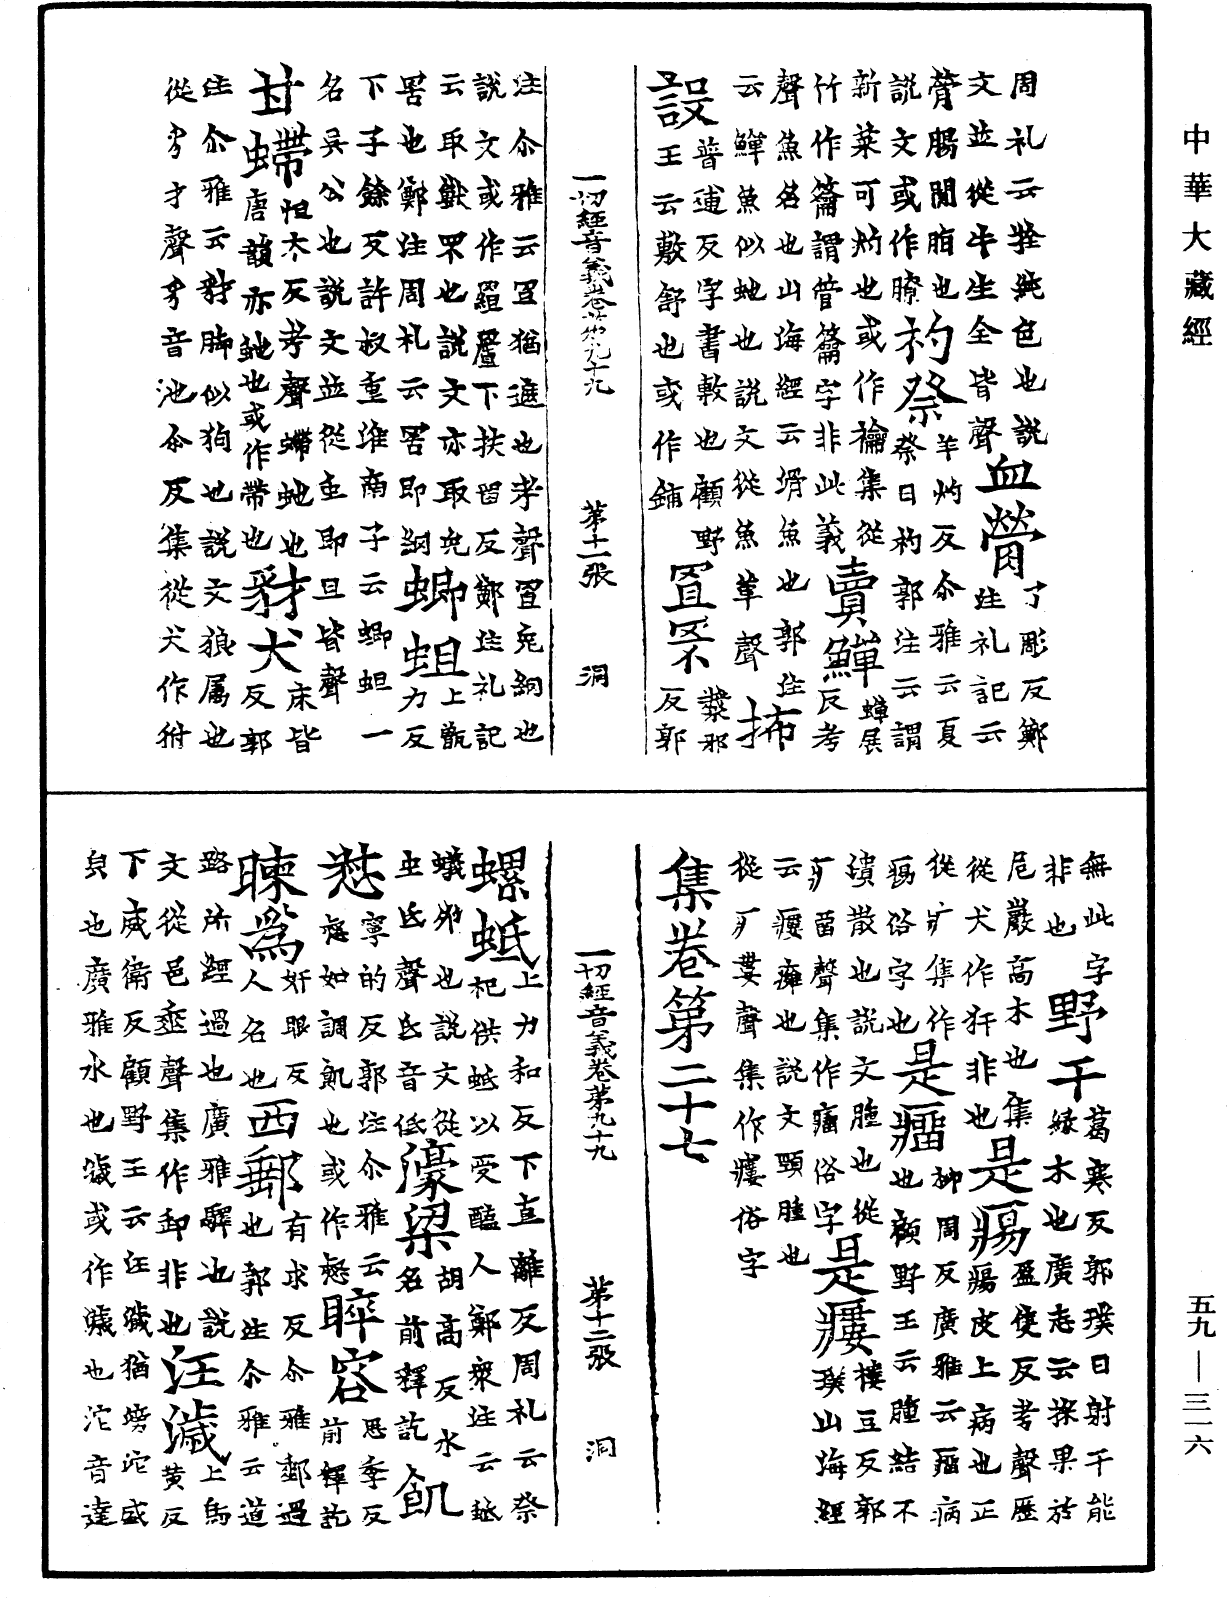 中華大藏經
周礼云牷純色也說
文並從牛生全皆聲
血膋
了彫反鄭
注礼記云
膋腸間脂也
說文或作膫
礿祭
羊灼反尒雅云夏
祭曰礿郭注云謂
新菜可灼也或作禴集從
竹作籥謂管籥字非此義
賣鱓
蟬展
反考
聲魚名也山海經云滑魚也郭注
云鱓魚似虵也說文從魚單聲
抪
設
普逋反字書敷也顧野
王云敷舒也或作鋪
罝罘
反郭
注尒雅云罝猶遮也考聲罝兔網也
說文或作
下扶留反鄭注礼記
云取獸罘也說文亦取兔
罟也鄭注周礼云罟即網
蝍蛆
上
力反
下子餘反許叔重淮南子云蝍蛆一
名吳公也說文並從虫即且皆聲
甘螮
怛大反考聲螮虵也
唐韻亦虵也或作帶也
豺犬
床皆
反郭
注尒雅云豺脚似狗也說文狼屬也
從豸才聲豸音池尒反集從犬作犲
一切經音義卷第九十九
第十一張
洞
無此字
非也
野干
葛寒反郭璞曰射干能
緣木也廣志云探果於
危巖高木也集
從犬作犴非也
是瘍
盈隻反考聲歷
瘍皮上病也正
從疒集作
瘍俗字也
是瘤
柳周反廣雅云瘤病
也顧野王云腫結不
潰散也說文腫也從
疒留聲集作癅俗字
是瘻
樓豆反郭
璞山海經
云瘻癰也說文頸腫也
從疒婁聲集作瘻俗字
集卷第二十七
一切經音義卷第九十九
第十二張
洞
螺蚳
上力和反下直離反周礼云祭
祀供蚳以受醢人鄭衆注云蚳
蟻卵也說文從
虫氐聲氐音低
濠梁
胡高反水
名前釋訖
飢
惄
寧的反郭注尒雅云
惄如調飢也或作
睟容
思季反
前釋訖
㬻爲
奸眼反
人名也
西郵
有求反尒雅郵過
也郭注尒雅云道
路所經過也廣雅驛也說
文從邑垂聲集作卸非也
汪濊
上烏
黃反
下威衛反顧野王云汪濊猶滂沱盛
皃也廣雅水也濊或作
也沱音達
五九—三一六